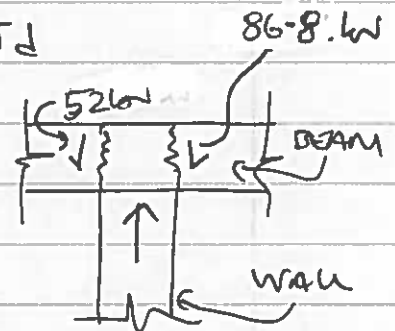 Td
86-8.kN
52kN
BEAM
WALL